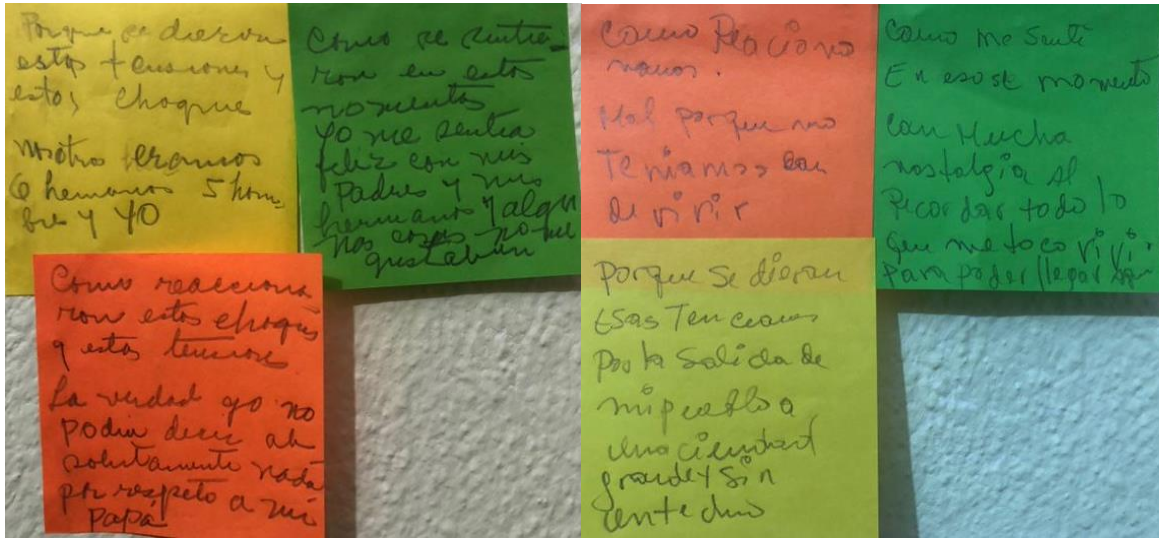 Porque se dieron
estos tensiones y
estos choque
nosotro eramos
6 hemanos 5 hom
bres y yo
Como se sintie-
ron en estos
momentos
yo me sentia
feliz con mis
Padres y mis
hermanos y algu
nos cosas no me
gustaban
Como reacciona
ron estos choques
y estas tensiones
La verdad yo no
podia decir ab
solutamente nada
por respeto a mi
Papá
Como Reaciona
mos.
Mal porque no
Teniamos
de vivir
Porque se dieron
Esas Tenciones
Por la Salida de
mi pueblo a
una ciudad
grande y Sin
un techo
Como me Senti
En ese momento
Con Mucha
nostalgia al
Recordar todo lo
que me toco vivir
para poder llegar